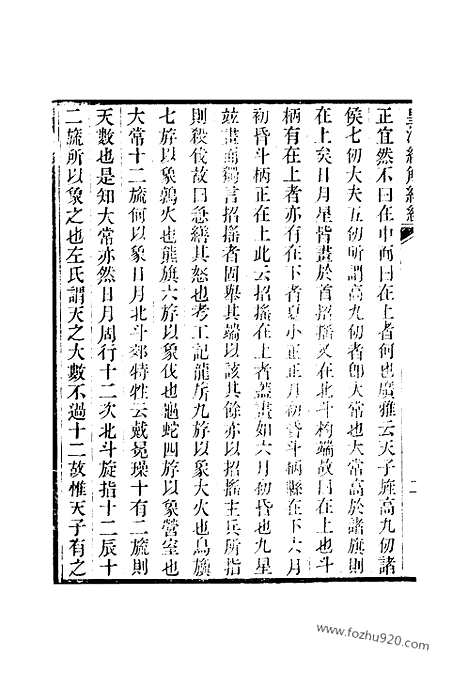 皇清經解續編
二
正宜然不曰在中而曰在上者何也廣雅云天子旌高九仞諸
侯七仞大夫五仞所謂高九仞者即大常也大常高於諸旗則
在上矣日月星皆畫於首招搖又在北斗杓端故曰在上也斗
柄有在上者亦有在下者夏小正正月初昏斗柄縣在下六月
初昏斗柄正在上此云招搖在上者蓋畫如六月初昏也九星
竝畫而獨言招搖者固舉其端以該其餘亦以招搖主兵所指
則殺伐故曰急繕其怒也考工記龍旂九斿以象大火也鳥旟
七斿以象鶉火也熊旗六斿以象伐也龜蛇四斿以象營室也
大常十二旒何以象日月北斗郊特牲云戴冕璪十有二旒則
天數也是知大常亦然日月周行十二次北斗旋指十二辰十
二旒所以象之也左氏謂天之大數不過十二故惟天子有之
www.fozhu920.com